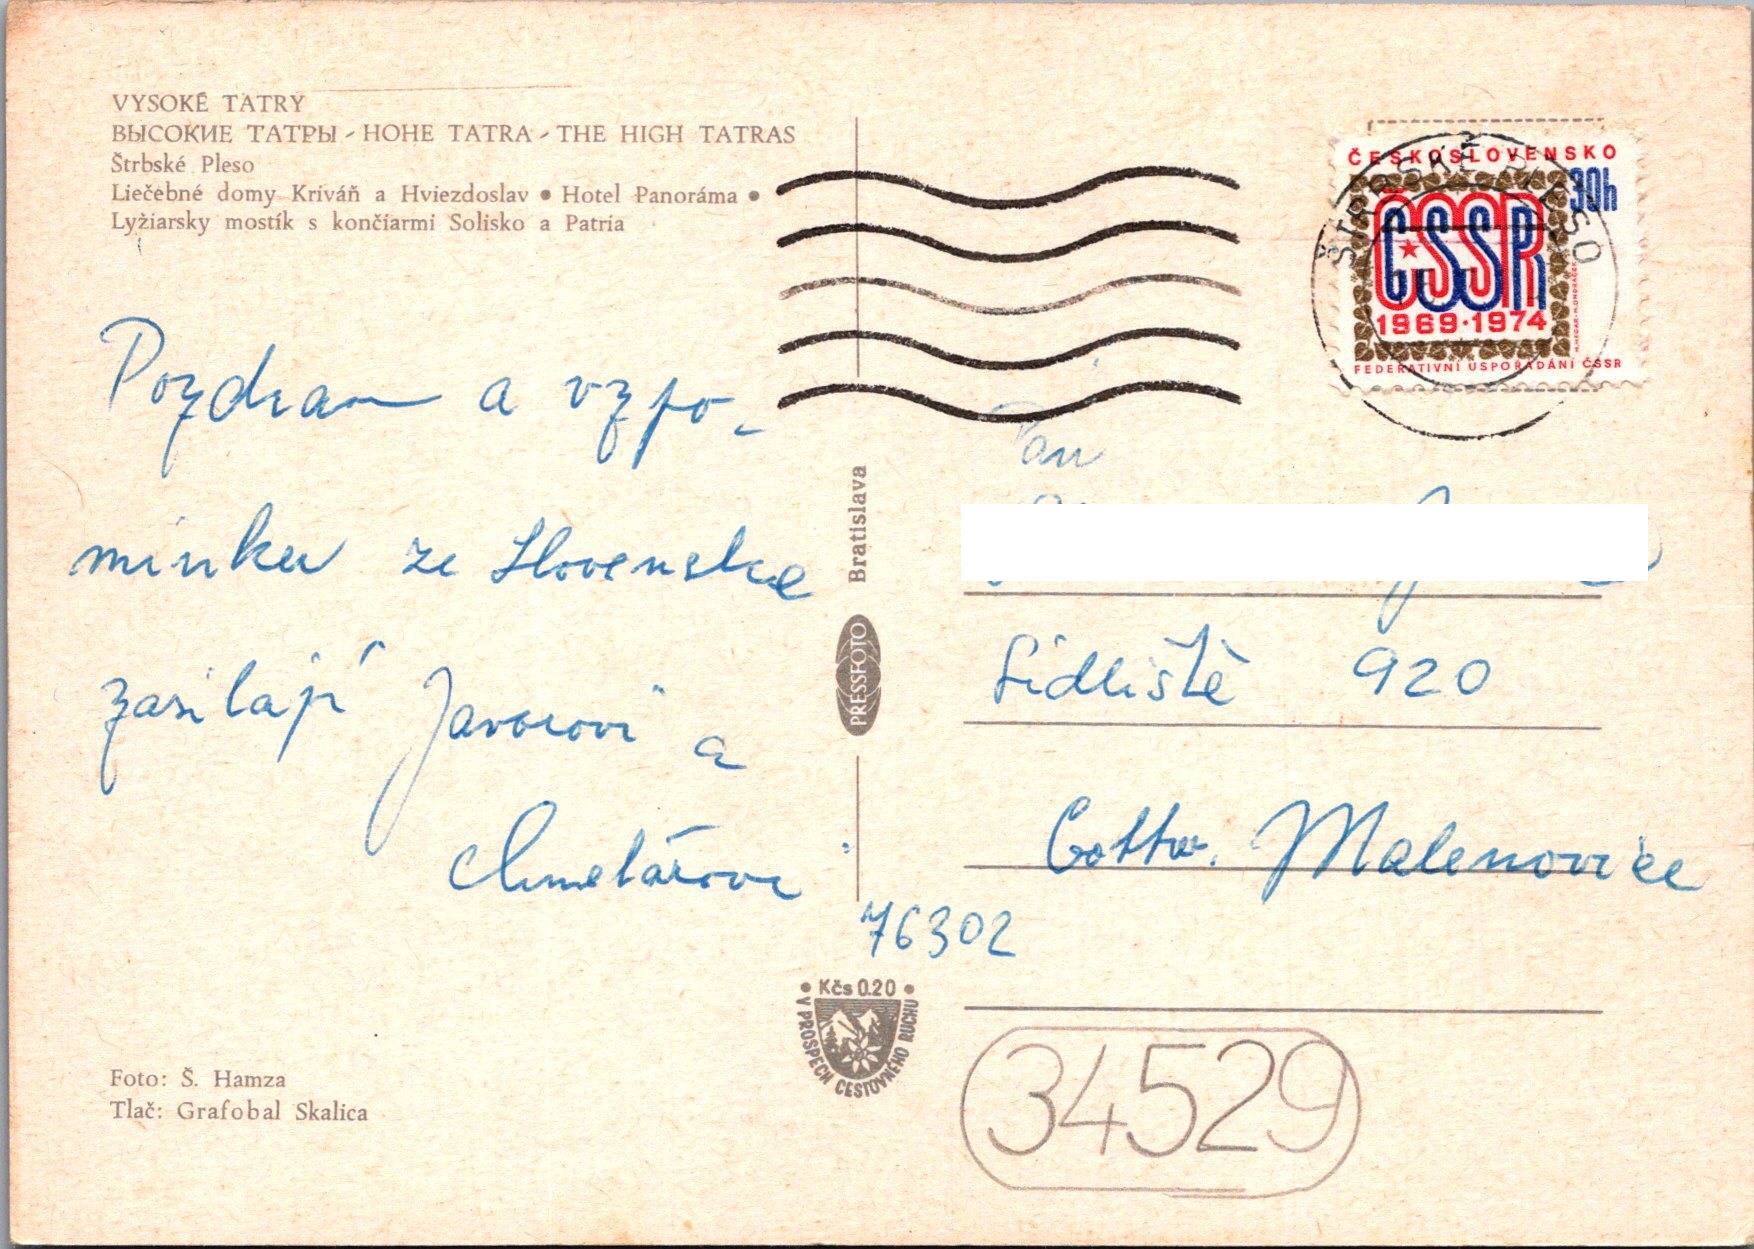 VYSOKÉ TATRY
ВЫСОКИЕ ТАТРЫ - HOHE TATRA - THE HIGH TATRAS
Štrbské Pleso
Liečebné domy Kriváň a Hviezdoslav • Hotel Panoráma •
Lyžiarsky mostík s končiarmi Solisko a Patria
Pozdrav a vzpo-
mínku ze Slovenska
zasílají Javorovi a
Chmelářovi
Foto: Š. Hamza
Tlač: Grafobal Skalica
Bratislava
PRESSFOTO
• Kčs 0.20 •
V PROSPECH CESTOVNÉHO RUCHU
ŠTRBSKÉ PLESO
ČESKOSLOVENSKO
30h
ČSSR
1969·1974
FEDERATIVNÍ USPOŘÁDÁNÍ ČSSR
Pan
Sídliště 920
Gottw. Malenovice
76302
34529